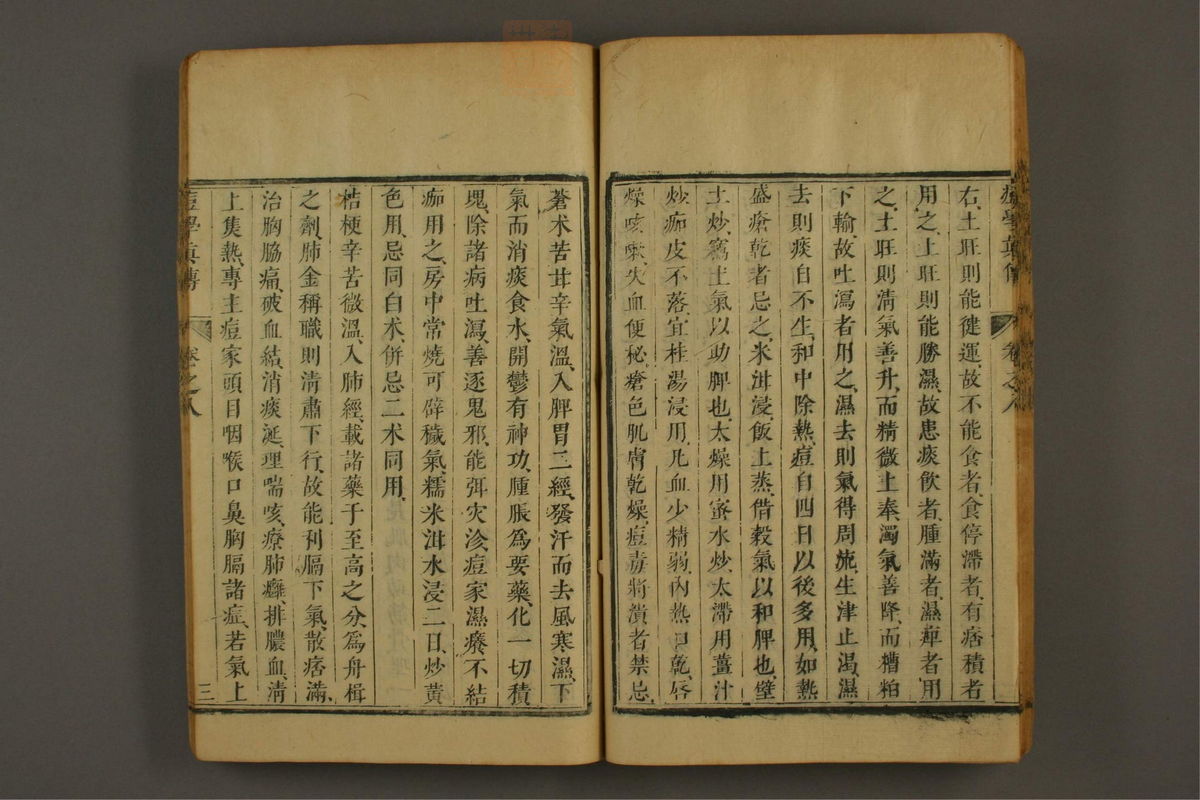 右土旺則能徤運故不能食者食停滯者有痞積者
用之土旺則能勝濕故患痰飲者腫滿者濕痺者用
之土旺則清氣善升而精微上奉濁氣善降而糟粕
下輸故吐瀉者用之濕去則氣得周流生津止渴濕
去則痰自不生和中除熱痘自四日以後多用如熱
盛瘡乾者忌之米泔浸飯上蒸借穀氣以和脾也壁
土炒竊土氣以助脾也太燥用蜜水炒太滯用薑汁
炒痂皮不落宜桂湯浸用凡血少精弱內熱口乾唇
燥咳嗽失血便秘瘡色肌膚乾燥痘毒將潰者禁忌
蒼朮苦甘辛氣溫入脾胃二經發汗而去風寒濕下
氣而消痰食水開鬱有神功腫脹爲要藥化一切積
塊除諸病吐瀉善逐鬼邪能弭灾沴痘家濕癢不結
痂用之房中常燒可辟穢氣糯米泔水浸二日炒黃
色用忌同白朮併忌二朮同用
桔梗辛苦微溫入肺經載諸藥于至高之分爲舟楫
之劑肺金稱職則清肅下行故能利膈下氣散痞滿
治胸脇痛破血結消痰涎理喘咳療肺癰排膿血清
上集熱專主痘家頭目咽喉口鼻胸膈諸症若氣上
痘學真傳 卷之八 三